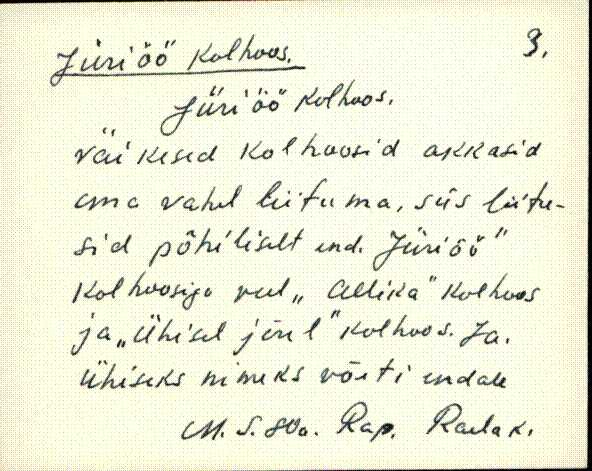 Jüriöö kolhoos. 3.
Jüriöö kolhoos.
väikesed kolhoosid akkasid
oma vahel liituma, siis liitu-
sid põhiliselt end. Jüriöö"
kolhoosiga veel „Allika" kolhoos
ja „Ühisel jõul" kolhoos. Ja.
Ühiseks nimeks võeti endale
M. S. Rap.